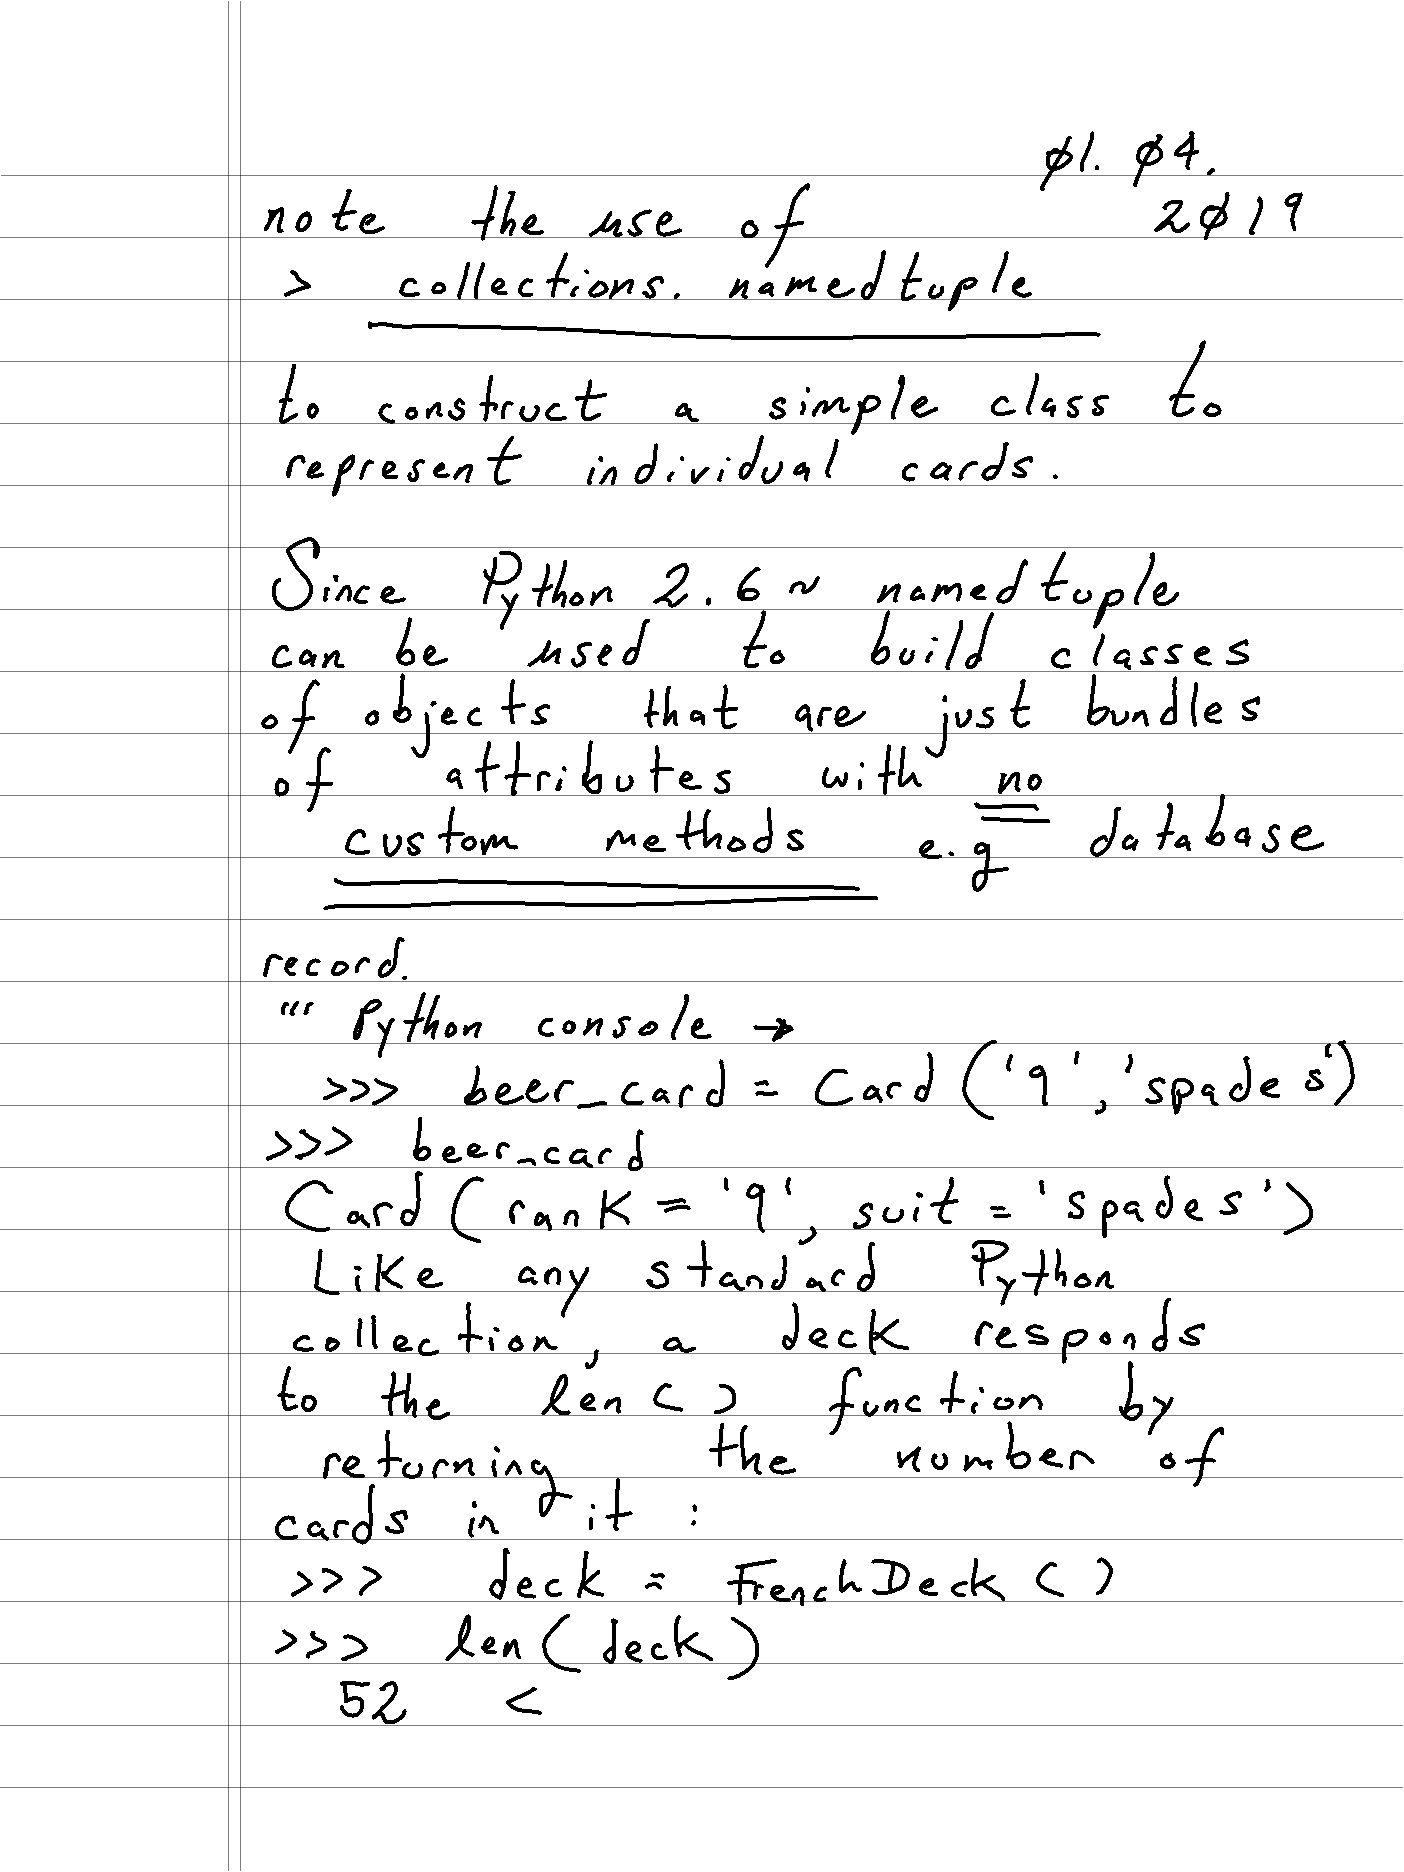 01. 04.
2019
note the use of
> collections. namedtuple
to construct a simple class to
represent individual cards.
Since Python 2.6 ~ namedtuple
can be used to build classes
of objects that are just bundles
of attributes with no
custom methods e.g database
record.
"' Python console →
>>> beer_card = Card ('9', 'spades')
>>> beer_card
Card (rank = '9', suit = 'spades')
Like any standard Python
collection, a deck responds
to the len() function by
returning the number of
cards in it :
>>> deck = FrenchDeck ()
>>> len (deck)
52 <